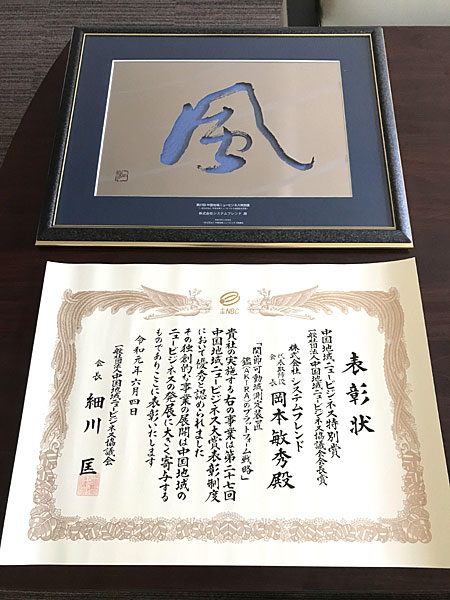 風
株式会社システムフレンド 殿
NBC
表彰状
中国地域ニュービジネス特別賞
一般社団法人中国地域ニュービジネス協議会会長賞
株式会社システムフレンド
代表取締役会長 岡本敏秀殿
「関節可動域測定装置
鑑(AKIRA)のプラットフォーム戦略」
貴社の実施する右の事業は第二十七回
中国地域ニュービジネス大賞表彰制度
において優秀と認められました
その独創的な事業の展開は中国地域の
ニュービジネスの発展に大きく寄与する
ものでありここに表彰いたします
令和元年六月四日
一般社団法人中国地域ニュービジネス協議会
会長 細川匡